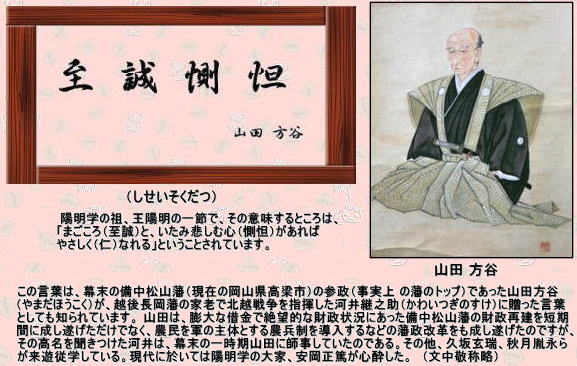 至誠惻怛
山田 方谷
(しせいそくだつ)
陽明学の祖、王陽明の一節で、その意味するところは、
「まごころ(至誠)と、いたみ悲しむ心(惻怛)があれば
やさしく(仁)なれる」ということされています。
山田 方谷
この言葉は、幕末の備中松山藩(現在の岡山県高梁市)の参政(事実上 の藩のトップ)であった山田方谷
(やまだほうこく)が、越後長岡藩の家老で北越戦争を指揮した河井継之助(かわいつぎのすけ)に贈った言葉
としても知られています。山田は、膨大な借金で絶望的な財政状況にあった備中松山藩の財政再建を短期
間に成し遂げただけでなく、農民を軍の主体とする農兵制を導入するなどの藩政改革をも成し遂げたのですが、
その高名を聞きつけた河井は、幕末の一時期山田に師事していたのである。その他、久坂玄瑞、秋月胤永ら
が来遊従学している。現代に於いては陽明学の大家、安岡正篤が心酔した。 (文中敬称略)